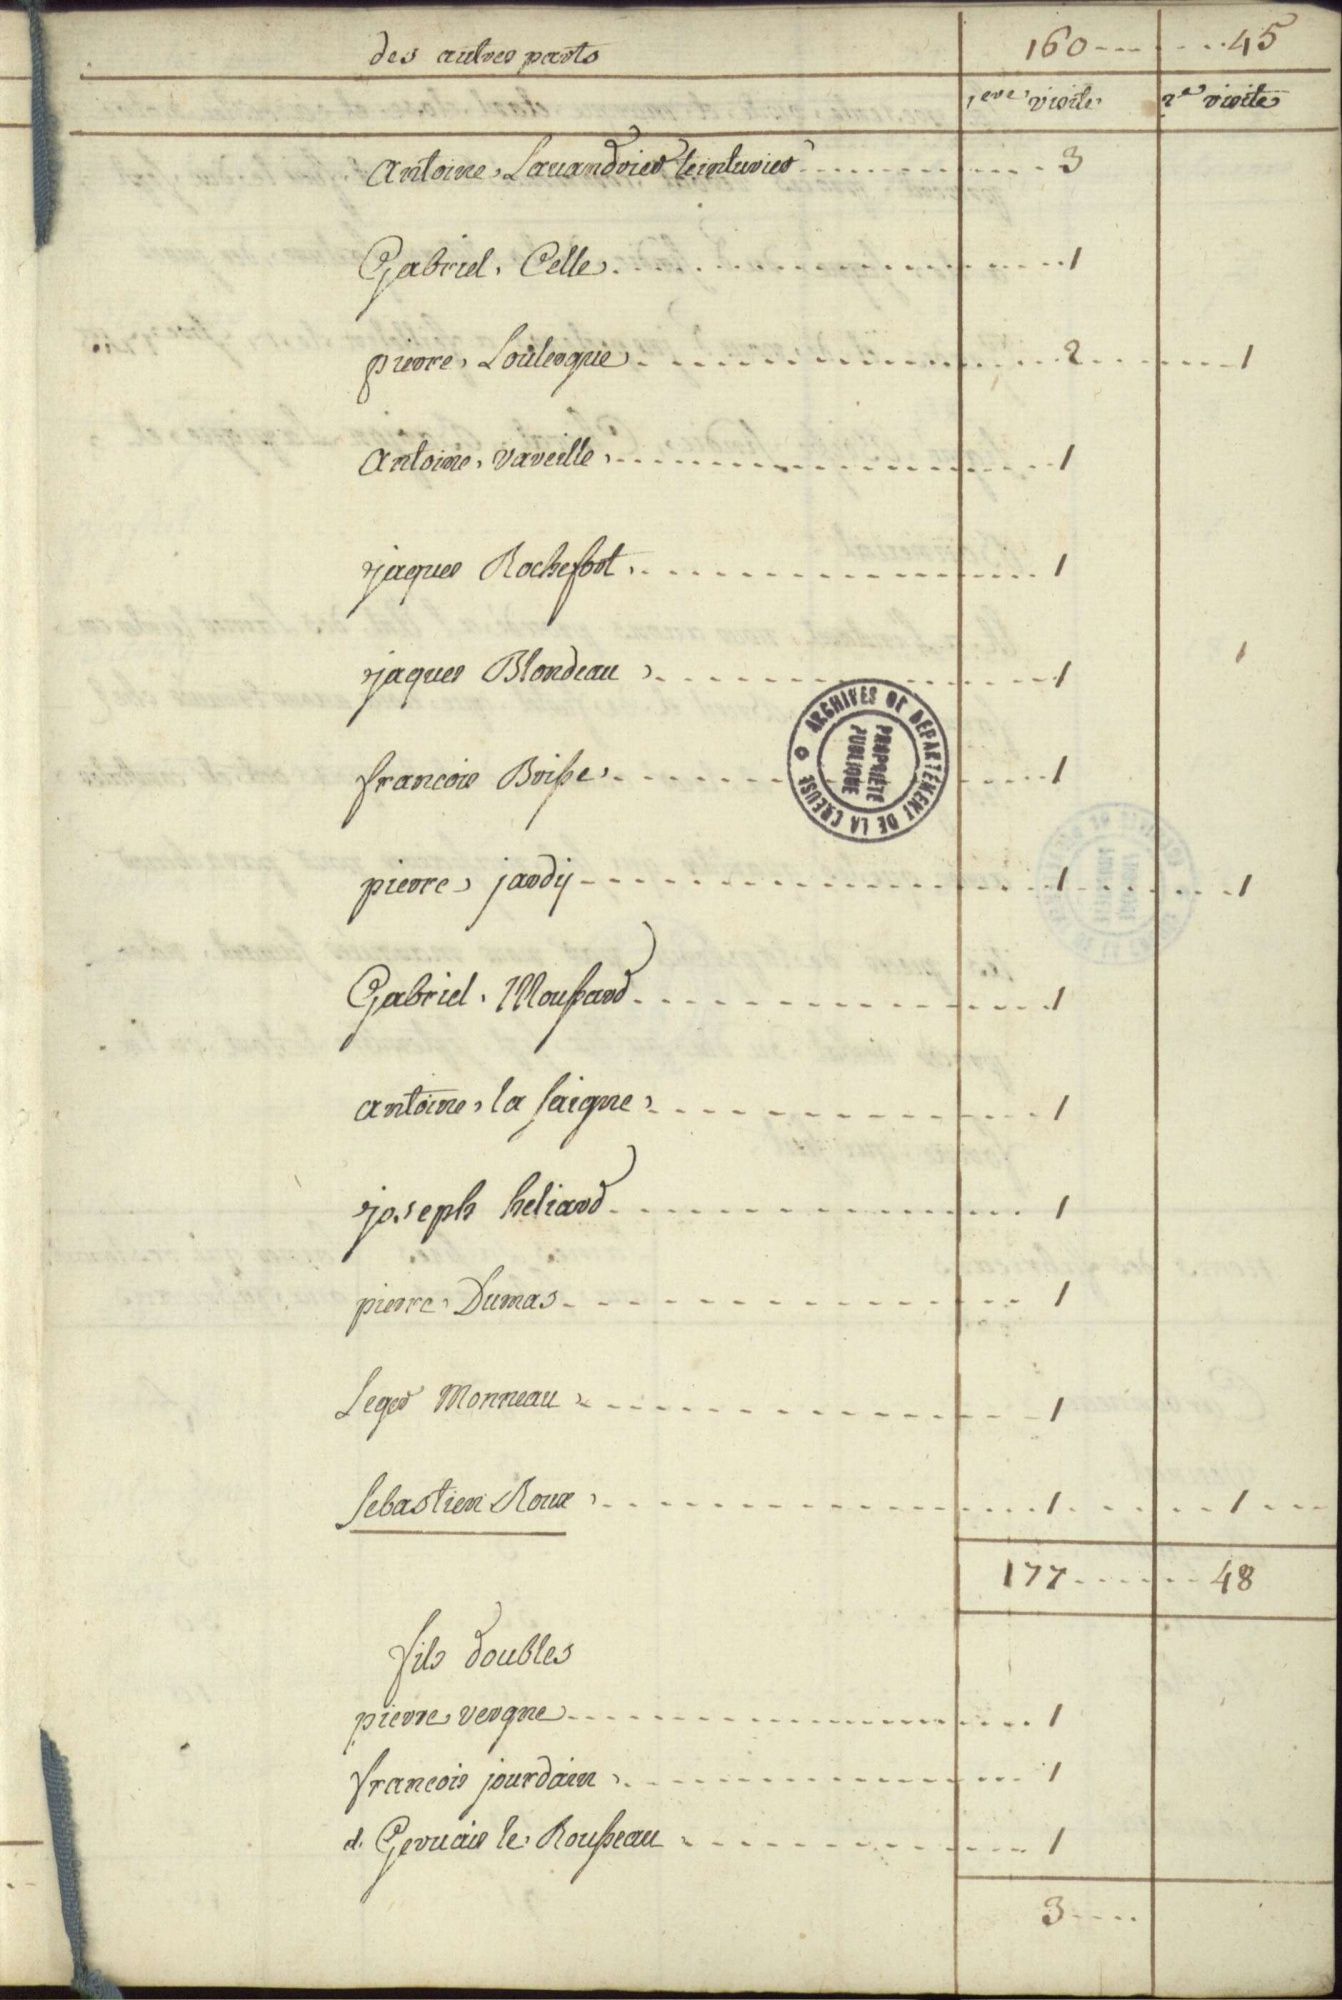 des autres parts 160 45
1ere visite 2e visite
Antoine Lauandrier teinturier 3
Gabriel Celle 1
pierre Loulergue 2 1
Antoine vaveille 1
jaques Rochefort 1
jaques Blondeau 1
francois Brisse 1
pierre jardij 1 1
Gabriel Moussard 1
antoine la saigne 1
joseph heliard 1
pierre Dumas 1
Leger Monneau 1
Sebastien Roux 1 1
177 48
fils doubles
pierre vergne 1
francois jourdain 1
et Geruais le Rousseau 1
3
ARCHIVES DE DEPARTEMENT DE LA CREUSE
PROPRIÉTÉ
PUBLIQUE